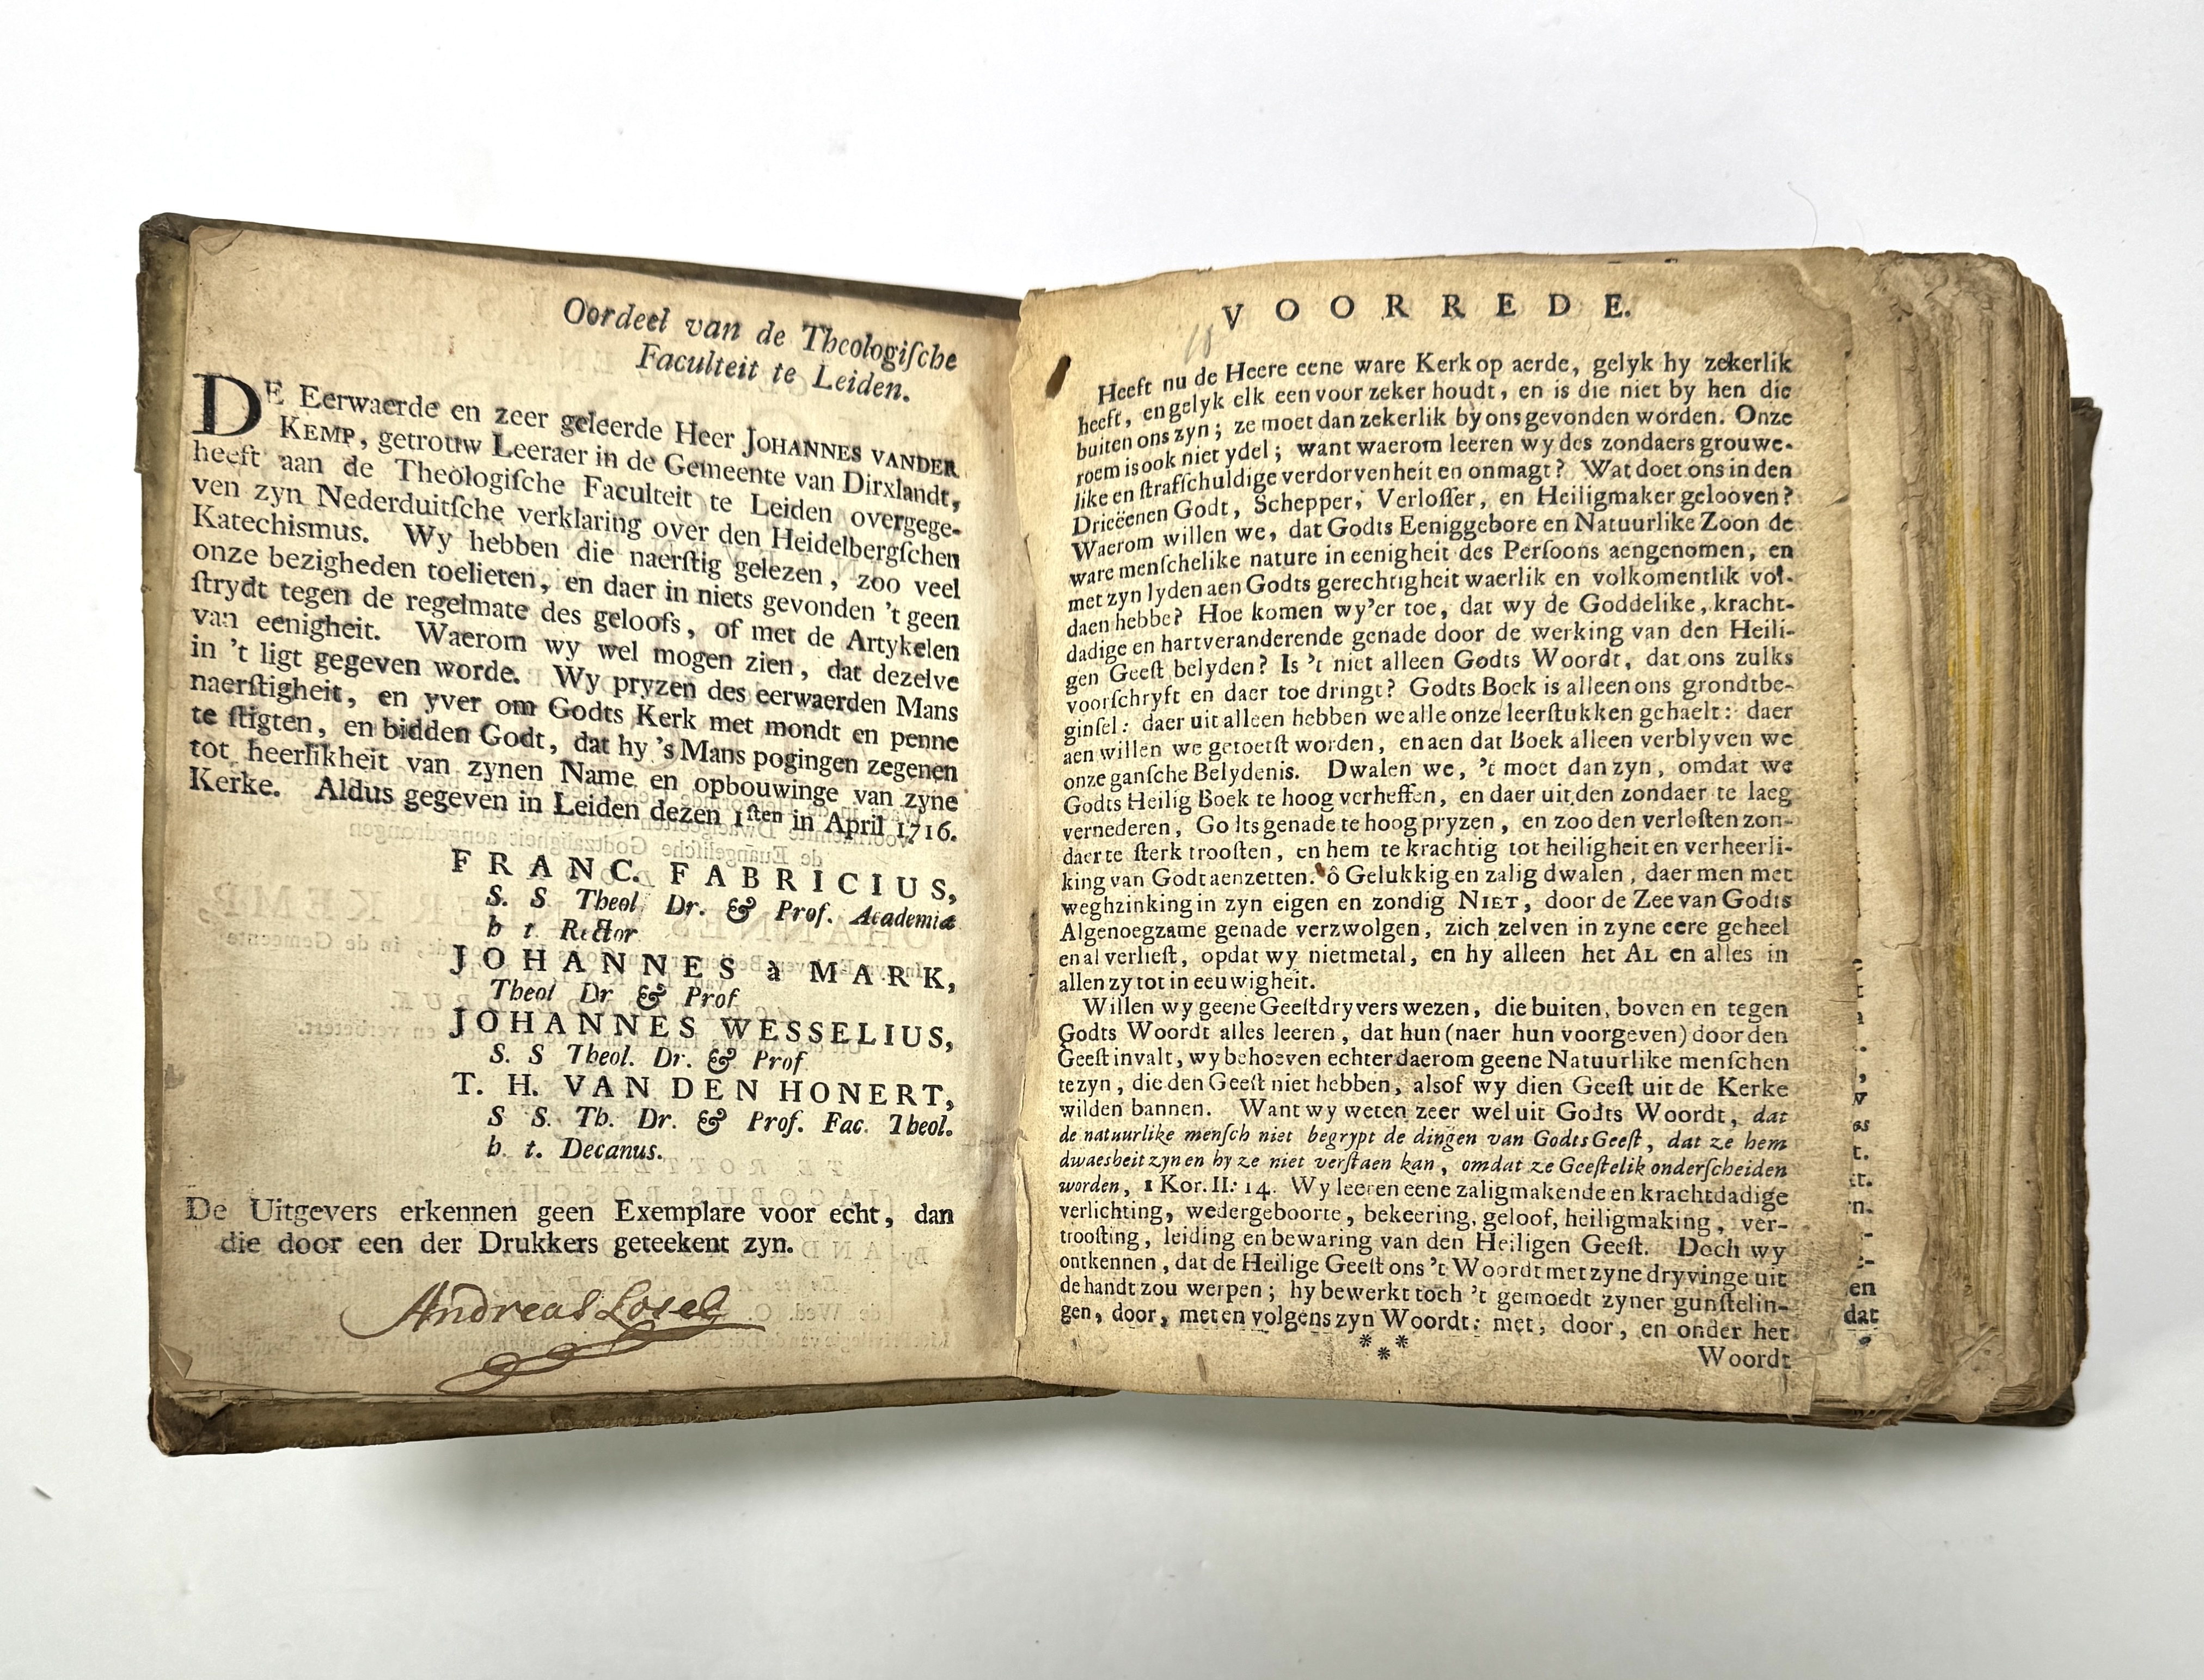 Oordeel van de Theologiſche
Faculteit te Leiden.
DE Eerwaerde en zeer geleerde Heer JOHANNES VANDER
KEMP, getrouw Leeraer in de Gemeente van Dirxlandt,
heeft aan de Theologiſche Faculteit te Leiden overgege-
ven zyn Nederduitſche verklaring over den Heidelbergſchen
Katechismus. Wy hebben die naerſtig gelezen, zoo veel
onze bezigheden toelieten, en daer in niets gevonden 't geen
ſtrydt tegen de regelmate des geloofs, of met de Artykelen
van eenigheit. Waerom wy wel mogen zien, dat dezelve
in 't ligt gegeven worde. Wy pryzen des eerwaerden Mans
naerſtigheit, en yver om Godts Kerk met mondt en penne
te ſtigten, en bidden Godt, dat hy 's Mans pogingen zegenen
tot heerlikheit van zynen Name en opbouwinge van zyne
Kerke. Aldus gegeven in Leiden dezen 1ſten in April 1716.
FRANC. FABRICIUS,
S. S Theol Dr. & Prof. Academiæ
h t Rector
JOHANNES à MARK,
Theol Dr & Prof
JOHANNES WESSELIUS,
S. S Theol. Dr. & Prof
T. H. VAN DEN HONERT,
S S. Th. Dr. & Prof. Fac. Theol.
h. t. Decanus.
De Uitgevers erkennen geen Exemplare voor echt, dan
die door een der Drukkers geteekent zyn.
Andreas Losel
VOORREDE.
Heeft nu de Heere eene ware Kerk op aerde, gelyk hy zekerlik
heeft, en gelyk elk een voor zeker houdt, en is die niet by hen die
buiten ons zyn; ze moet dan zekerlik by ons gevonden worden. Onze
roem is ook niet ydel; want waerom leeren wy des zondaers grouwe-
like en ſtrafſchuldige verdorvenheit en onmagt? Wat doet ons in den
Drieëenen Godt, Schepper, Verloſſer, en Heiligmaker gelooven?
Waerom willen we, dat Godts Eeniggebore en Natuurlike Zoon de
ware menſchelike nature in eenigheit des Perſoons aengenomen, en
met zyn lyden aen Godts gerechtigheit waerlik en volkomentlik vol-
daen hebbe? Hoe komen wy'er toe, dat wy de Goddelike, kracht-
dadige en hartveranderende genade door de werking van den Heili-
gen Geeſt belyden? Is 't niet alleen Godts Woordt, dat ons zulks
voorſchryft en daer toe dringt? Godts Boek is alleen ons grondtbe-
ginſel: daer uit alleen hebben we alle onze leerſtukken gehaelt: daer
aen willen we getoetſt worden, en aen dat Boek alleen verblyven we
onze ganſche Belydenis. Dwalen we, 't moet dan zyn, omdat we
Godts Heilig Boek te hoog verheffen, en daer uit den zondaer te laeg
vernederen, Godts genade te hoog pryzen, en zoo den verloſten zon-
daer te ſterk trooſten, en hem te krachtig tot heiligheit en verheerli-
king van Godt aenzetten. ô Gelukkig en zalig dwalen, daer men met
weghzinking in zyn eigen en zondig NIET, door de Zee van Godts
Algenoegzame genade verzwolgen, zich zelven in zyne eere geheel
en al verlieſt, opdat wy niet metal, en hy alleen het AL en alles in
allen zy tot in eeuwigheit.
Willen wy geene Geeſtdryvers wezen, die buiten, boven en tegen
Godts Woordt alles leeren, dat hun (naer hun voorgeven) door den
Geeſt invalt, wy behoeven echter daerom geene Natuurlike menſchen
te zyn, die den Geeſt niet hebben, alsof wy dien Geeſt uit de Kerke
wilden bannen. Want wy weten zeer wel uit Godts Woordt, dat
de natuurlike menſch niet begrypt de dingen van Godts Geeſt, dat ze hem
dwaesheit zyn en hy ze niet verſtaen kan, omdat ze Geeſtelik onderſcheiden
worden, 1 Kor. II: 14. Wy leeren eene zaligmakende en krachtdadige
verlichting, wedergeboorte, bekeering, geloof, heiligmaking, ver-
trooſting, leiding en bewaring van den Heiligen Geeſt. Doch wy
ontkennen, dat de Heilige Geeſt ons 't Woordt met zyne dryvinge uit
de handt zou werpen; hy bewerkt toch 't gemoedt zyner gunſtelin-
gen, door, met en volgens zyn Woordt: met, door, en onder het
***
Woordt
en
dat